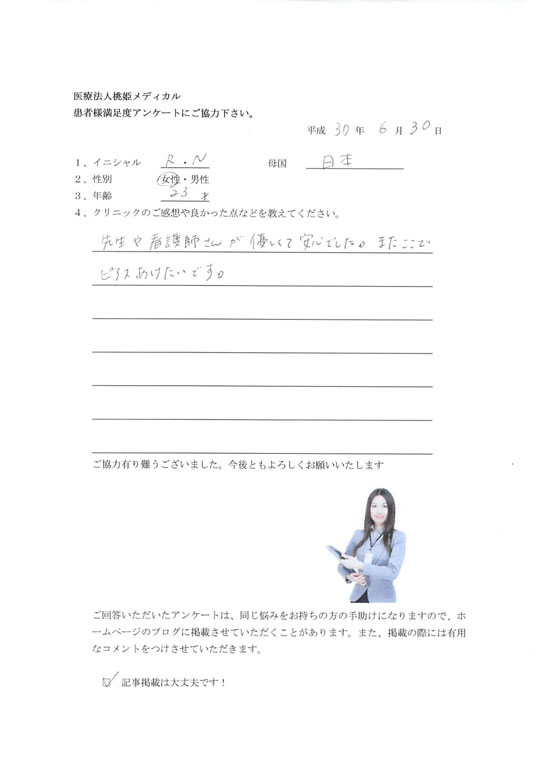 医療法人桃姫メディカル
患者様満足度アンケートにご協力下さい。
平成 30 年 6 月 30 日
1、イニシャル R・N 母国 日本
2、性別 女性・男性
3、年齢 23 才
4、クリニックのご感想や良かった点などを教えてください。
先生や看護師さんが優しくて安心でした。またここで
ピアスあけたいです。
ご協力有り難うございました。今後ともよろしくお願いいたします
ご回答いただいたアンケートは、同じ悩みをお持ちの方の手助けになりますので、ホ
ームページのブログに掲載させていただくことがあります。また、掲載の際には有用
なコメントをつけさせていただきます。
☑ 記事掲載は大丈夫です！